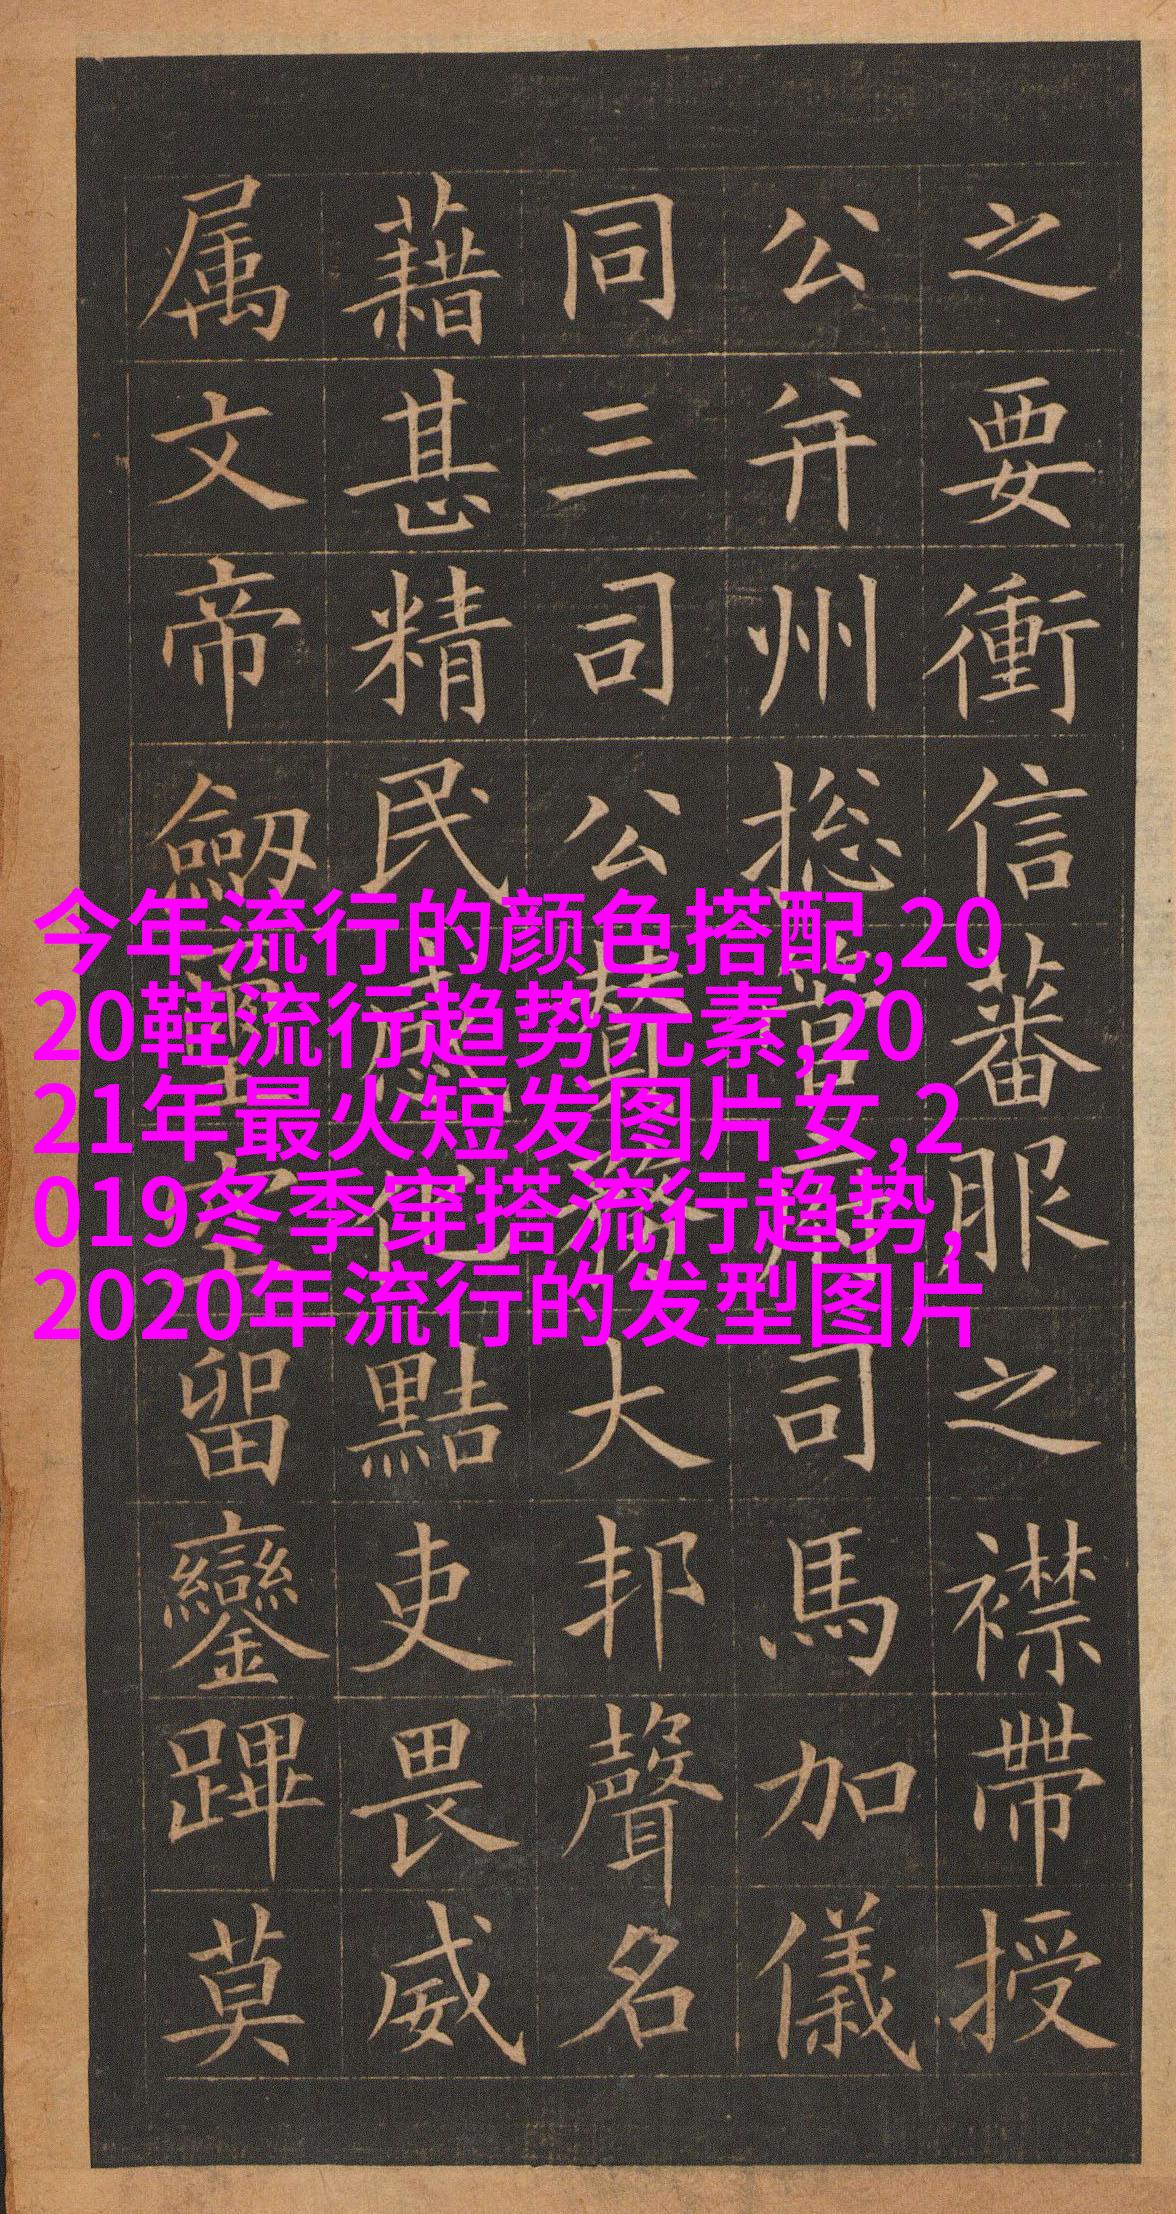 之要衝信蕃服之襟帶授
公并州捴管府司馬加儀
同三司公贊務大邦聲名
藉甚精民感化黠吏畏威
属文帝劒璽空留鑾蹕莫
今年流行的颜色搭配,20
20鞋流行趋势元素,20
21年最火短发图片女,2
019冬季穿搭流行趋势,
2020年流行的发型图片